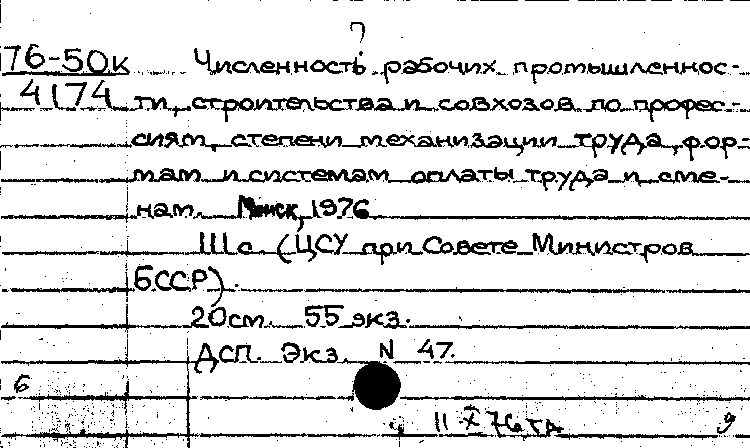 76-50к
4174
Численность рабочих промышленнос-
ти, строительства и совхозов по профес-
сиям, степени механизации труда, фор-
мам и системам оплаты труда и сме-
нам. Минск, 1976
111 с. (ЦСУ при Совете Министров
БССР).
20см. 55 экз.
ДСП. Экз. N 47.
б
11 X 76